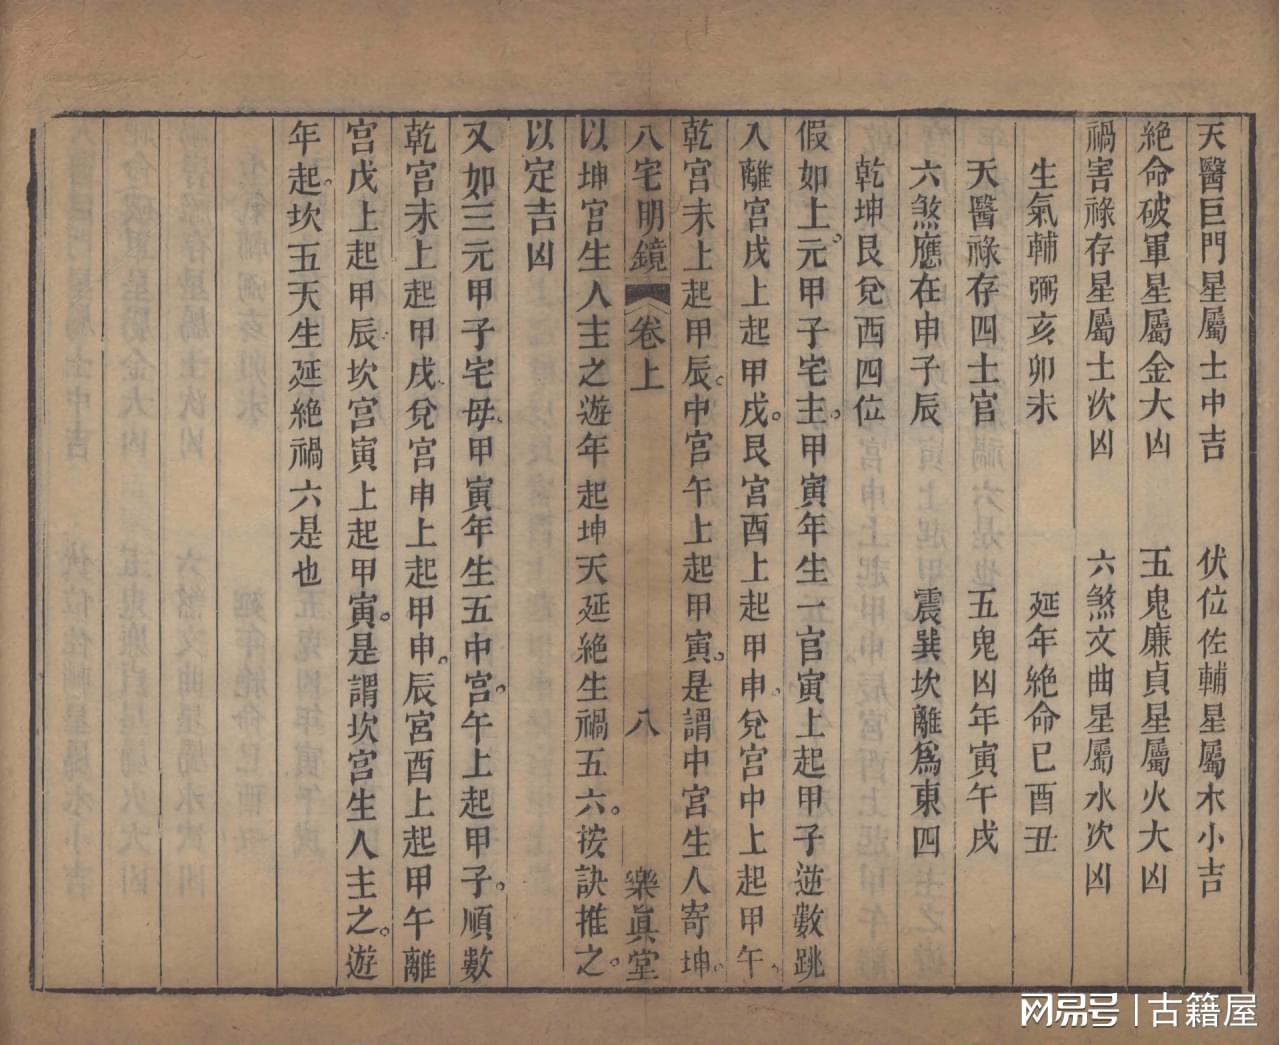 天醫巨門星屬土中吉　伏位佐輔星屬木小吉
絕命破軍星屬金大凶　五鬼廉貞星屬火大凶
禍害祿存星屬土次凶　六煞文曲星屬水次凶
生氣輔弼亥卯未　延年絕命巳酉丑
天醫祿存四土宮　五鬼凶年寅午戌
六煞應在申子辰　震巽坎離爲東四
乾坤艮兌西四位
假如上元甲子宅主。甲寅年生一宮寅上起甲子逆數跳
入離宮戌上起甲戌。艮宮酉上起甲申。兌宮中上起甲午。
乾宮未上起甲辰。中宮午上起甲寅。是謂中宮生人寄坤。
八宅明鏡 卷上 八 樂眞堂
以坤宮生人主之遊年起坤天延絕生禍五六。按訣推之。
以定吉凶
又如三元甲子宅母。甲寅年生五中宮。午上起甲子。順數
乾宮未上起甲戌。兌宮申上起甲申。辰宮酉上起甲午離
宮戌上起甲辰坎宮寅上起甲寅。是謂坎宮生人主之。遊
年起。坎五天生延絕禍六是也
网易号 | 古籍屋